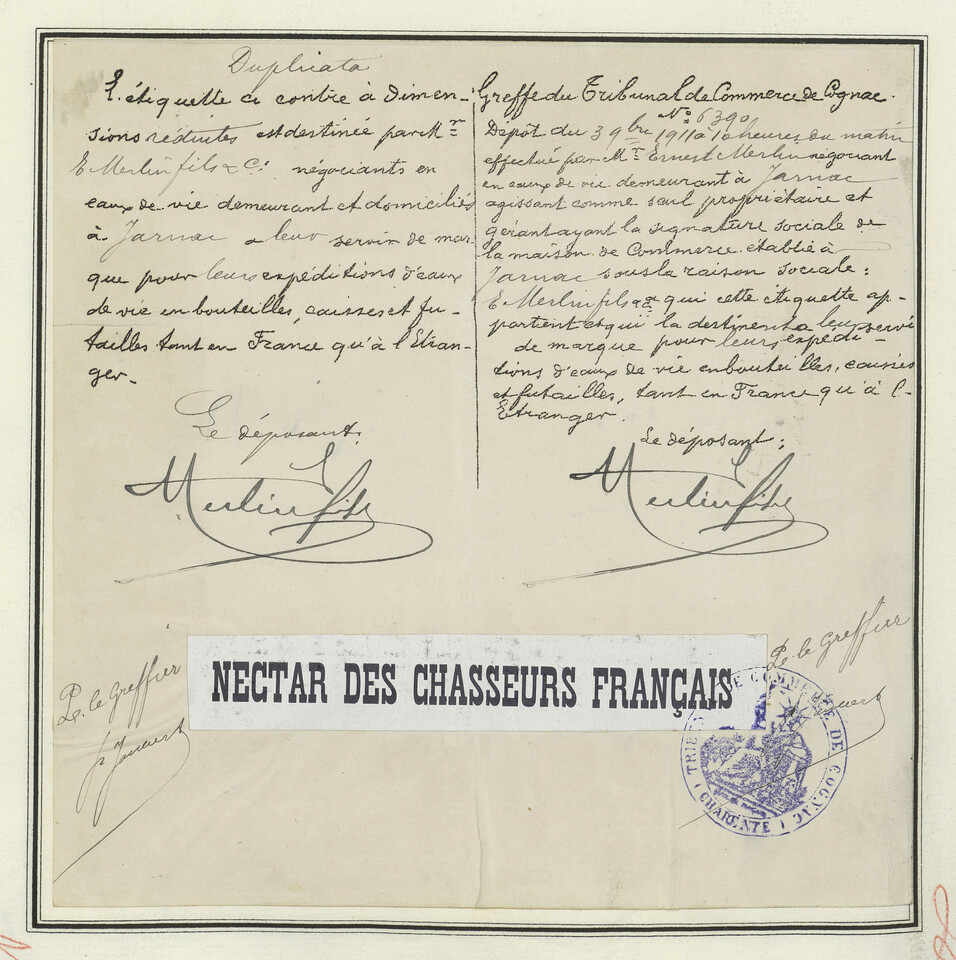 Duplicata
L'étiquette ci contre à Dimen-
sions réduites est destinée par Mr
E Merlin fils & Cie négociants en
eaux de vie demeurant et domiciliés
à Jarnac a leur servir de mar
que pour leurs expéditions d'eaux
de vie en bouteilles, caisses et fu-
tailles tant en France qu'à l'Etran-
ger.
Le déposant.
Merlin fils
Greffe du Tribunal de Commerce de Cognac.
No 6390
Dépôt du 3 9bre 1911 à 10 heures du matin
effectué par Mr Ernest Merlin négociant
en eaux de vie demeurant à Jarnac
agissant comme seul propriétaire et
gérant ayant la signature sociale de
la maison de Commerce établie à
Jarnac sous la raison sociale:
E Merlin fils & Cie qui cette étiquette ap-
partient et qui la destinent a leur servi
de marque pour leurs expédi-
tions d'eaux de vie en bouteilles, caisses
et futailles, tant en France qu'à l'-
Etranger.
Le déposant;
Merlin fils
P. le Greffier
P. le Greffier
NECTAR DES CHASSEURS FRANÇAIS
TRIBUNAL DE COMMERCE DE COGNAC
(CHARENTE)